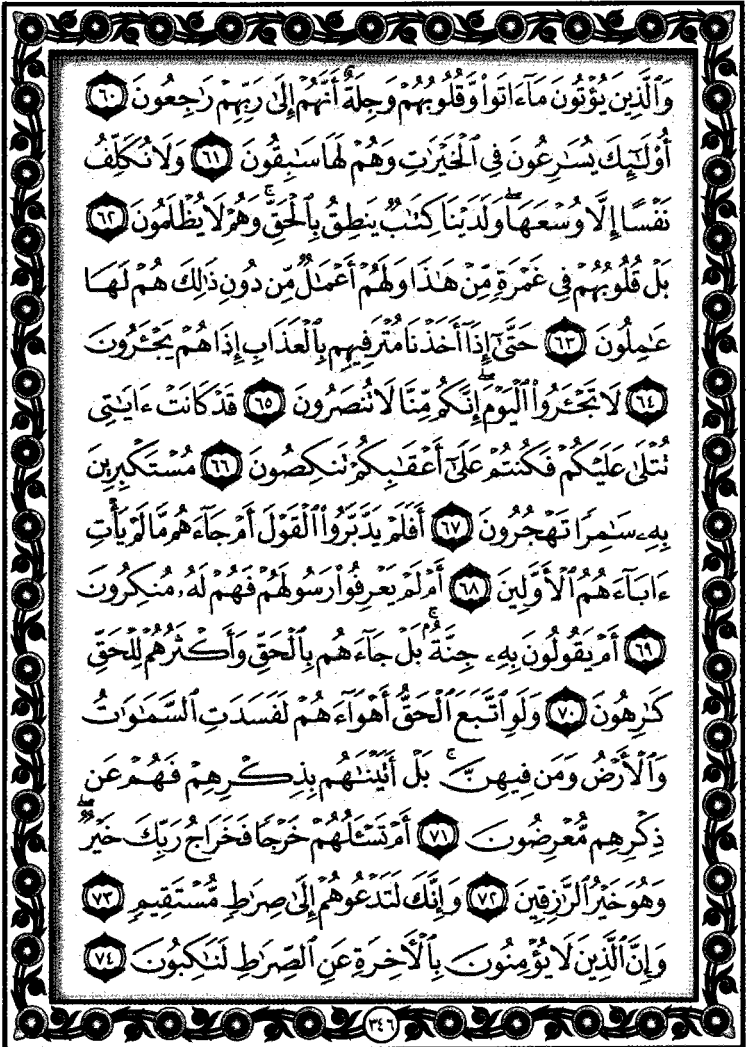 وَٱلَّذِينَ يُؤْتُونَ مَآءَاتَوا۟ وَّقُلُوبُهُمْ وَجِلَةٌ أَنَّهُمْ إِلَىٰ رَبِّهِمْ رَٰجِعُونَ ٦٠
أُو۟لَـٰٓئِكَ يُسَـٰرِعُونَ فِى ٱلْخَيْرَٰتِ وَهُمْ لَهَا سَـٰبِقُونَ ٦١ وَلَا نُكَلِّفُ
نَفْسًا إِلَّا وُسْعَهَا ۖ وَلَدَيْنَا كِتَـٰبٌ يَنطِقُ بِٱلْحَقِّ ۚ وَهُمْ لَا يُظْلَمُونَ ٦٢
بَلْ قُلُوبُهُمْ فِى غَمْرَةٍ مِّنْ هَـٰذَا وَلَهُمْ أَعْمَـٰلٌ مِّن دُونِ ذَٰلِكَ هُمْ لَهَا
عَـٰمِلُونَ ٦٣ حَتَّىٰٓ إِذَآ أَخَذْنَا مُتْرَفِيهِم بِٱلْعَذَابِ إِذَا هُمْ يَجْـَٔرُونَ
٦٤ لَا تَجْـَٔرُوا۟ ٱلْيَوْمَ ۖ إِنَّكُم مِّنَّا لَا تُنصَرُونَ ٦٥ قَدْ كَانَتْ ءَايَـٰتِى
تُتْلَىٰ عَلَيْكُمْ فَكُنتُمْ عَلَىٰٓ أَعْقَـٰبِكُمْ تَنكِصُونَ ٦٦ مُسْتَكْبِرِينَ
بِهِۦ سَـٰمِرًا تَهْجُرُونَ ٦٧ أَفَلَمْ يَدَّبَّرُوا۟ ٱلْقَوْلَ أَمْ جَآءَهُم مَّا لَمْ يَأْتِ
ءَابَآءَهُمُ ٱلْأَوَّلِينَ ٦٨ أَمْ لَمْ يَعْرِفُوا۟ رَسُولَهُمْ فَهُمْ لَهُۥ مُنكِرُونَ
٦٩ أَمْ يَقُولُونَ بِهِۦ جِنَّةٌۢ ۚ بَلْ جَآءَهُم بِٱلْحَقِّ وَأَكْثَرُهُمْ لِلْحَقِّ
كَـٰرِهُونَ ٧٠ وَلَوِ ٱتَّبَعَ ٱلْحَقُّ أَهْوَآءَهُمْ لَفَسَدَتِ ٱلسَّمَـٰوَٰتُ
وَٱلْأَرْضُ وَمَن فِيهِنَّ ۚ بَلْ أَتَيْنَـٰهُم بِذِكْرِهِمْ فَهُمْ عَن
ذِكْرِهِم مُّعْرِضُونَ ٧١ أَمْ تَسْـَٔلُهُمْ خَرْجًا فَخَرَاجُ رَبِّكَ خَيْرٌ ۖ
وَهُوَ خَيْرُ ٱلرَّٰزِقِينَ ٧٢ وَإِنَّكَ لَتَدْعُوهُمْ إِلَىٰ صِرَٰطٍ مُّسْتَقِيمٍ ٧٣
وَإِنَّ ٱلَّذِينَ لَا يُؤْمِنُونَ بِٱلْـَٔاخِرَةِ عَنِ ٱلصِّرَٰطِ لَنَـٰكِبُونَ ٧٤
٣٤٦